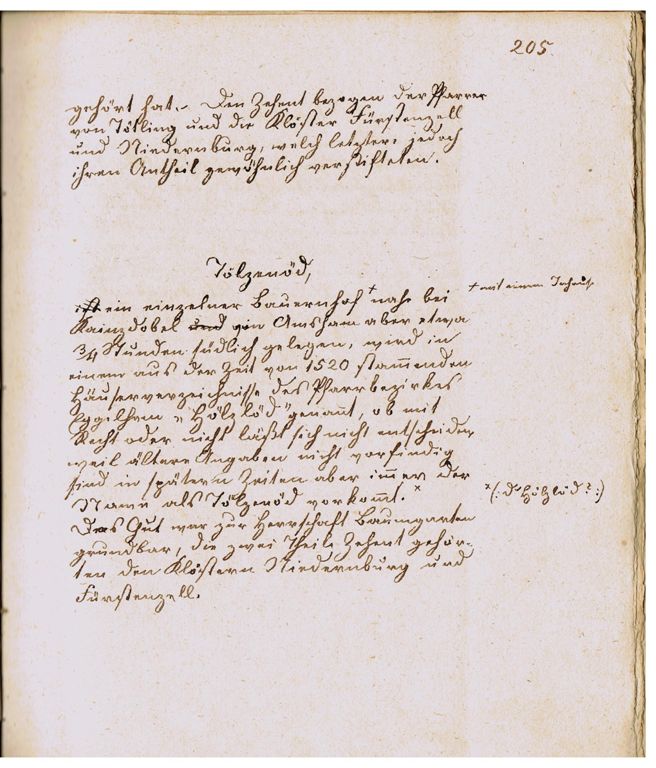 205
gehört hat. – Den Zehent bezogen der Pfarrer
von Tötling und die Klöster Fürstenzell
und Niedernburg, welch letztere jedoch
ihren Antheil gewöhnlich verstifteten.
Tölzenöd,
ist ein einzelner Bauernhof + nahe bei
+ mit einem
Kainzdobel und von Amsham aber etwa
3/4 Stunden südlich gelegen, wird in
einem aus der Zeit von 1520 stammenden
Häuserverzeichnisse des Pfarrbezirkes
Egglham „Hölzlöd" genannt, ob mit
Recht oder nicht läßt sich nicht entscheiden,
weil ältere Angaben nicht vorfindig
sind in spätern Zeiten aber immer der
Name als Tölzenöd vorkommt. ×
×(: d'Hölzlöd? :)
Das Gut war zur Herrschaft Baumgarten
grundbar, die zwei Theile Zehent gehör-
ten den Klöstern Niedernburg und
Fürstenzell.